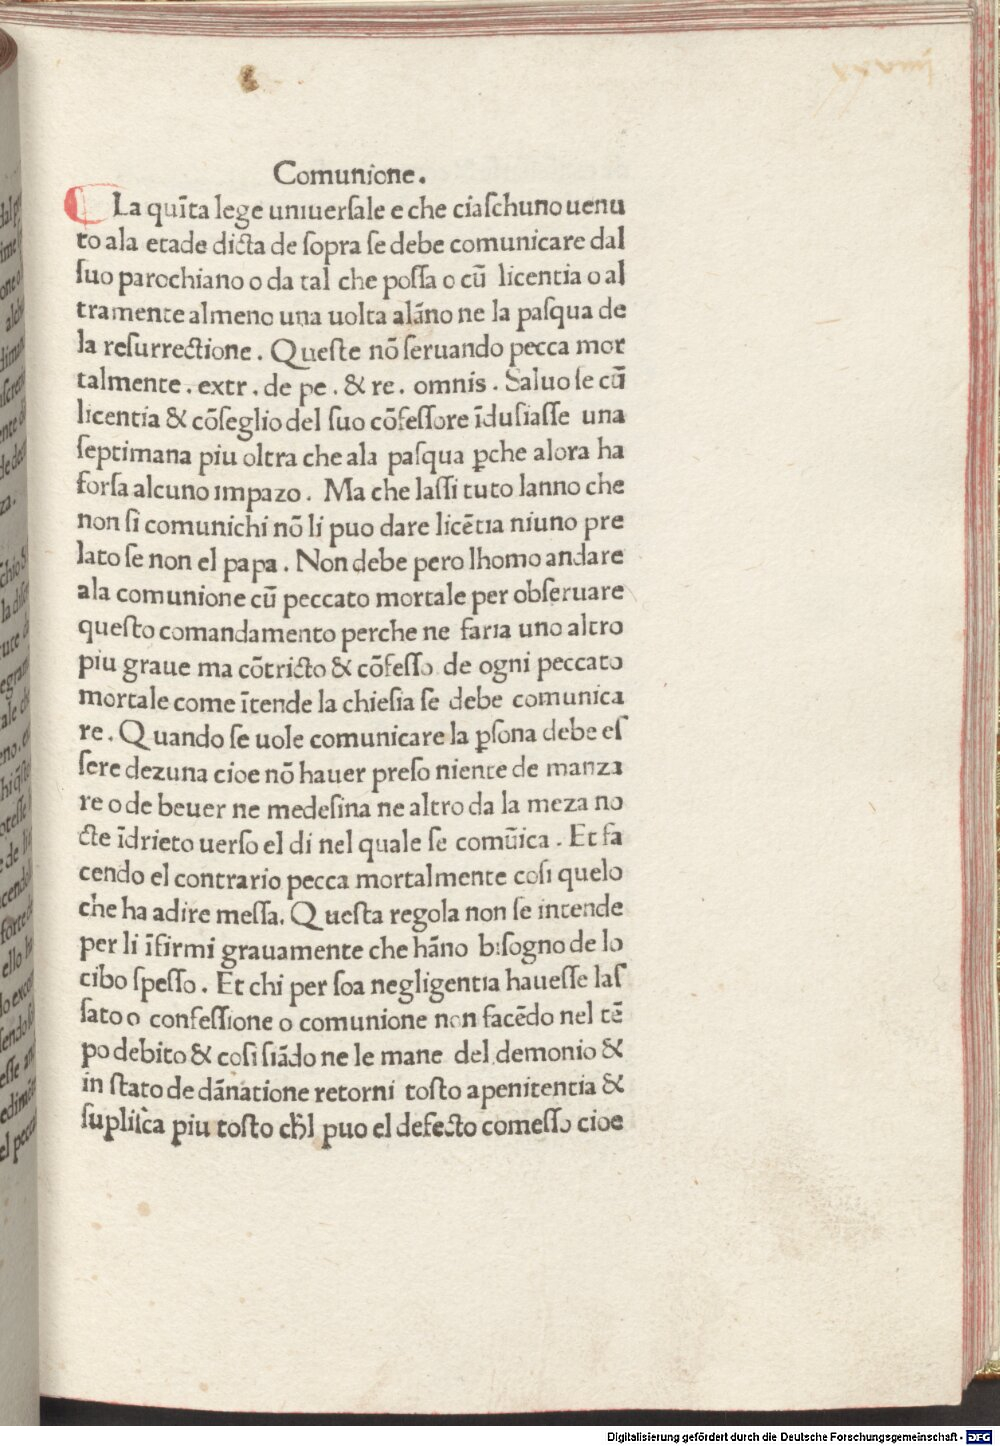 Comunione.
La quīta lege uniuersale e che ciaſchuno uenu
to ala etade dicta de ſopra ſe debe comunicare dal
ſuo parochiano o da tal che poſſa o cū licentia o al
tramente almeno una uolta alāno ne la paſqua de
la reſurrectione. Queſte nō ſeruando pecca mor
talmente. extr. de pe. & re. omnis. Saluo ſe cū
licentia & cōſeglio del ſuo cōfeſſore īduſiaſſe una
ſeptimana piu oltra che ala paſqua ꝑche alora ha
forſa alcuno impazo. Ma che laſſi tuto lanno che
non ſi comunichi nō li puo dare licētia niuno pre
lato ſe non el papa. Non debe pero lhomo andare
ala comunione cū peccato mortale per obſeruare
queſto comandamento perche ne faria uno altro
piu graue ma cōtricto & cōfeſſo de ogni peccato
mortale come ītende la chieſia ſe debe comunica
re. Quando ſe uole comunicare la ꝑſona debe eſ
ſere dezuna cioe nō hauer preſo niente de manza
re o de beuer ne medeſina ne altro da la meza no
cte īdrieto uerſo el di nel quale ſe comūica. Et fa
cendo el contrario pecca mortalmente coſi quelo
che ha adire meſſa. Queſta regola non ſe intende
per li īfirmi grauamente che hāno biſogno de lo
cibo ſpeſſo. Et chi per ſoa negligentia haueſſe laſ
ſato o confeſſione o comunione non facēdo nel tē
po debito & coſi ſiādo ne le mane del demonio &
in ſtato de dānatione retorni toſto a penitentia &
ſupliſca piu toſto ch̄l puo el defecto comeſſo cioe
Digitalisierung gefördert durch die Deutsche Forschungsgemeinschaft - DFG